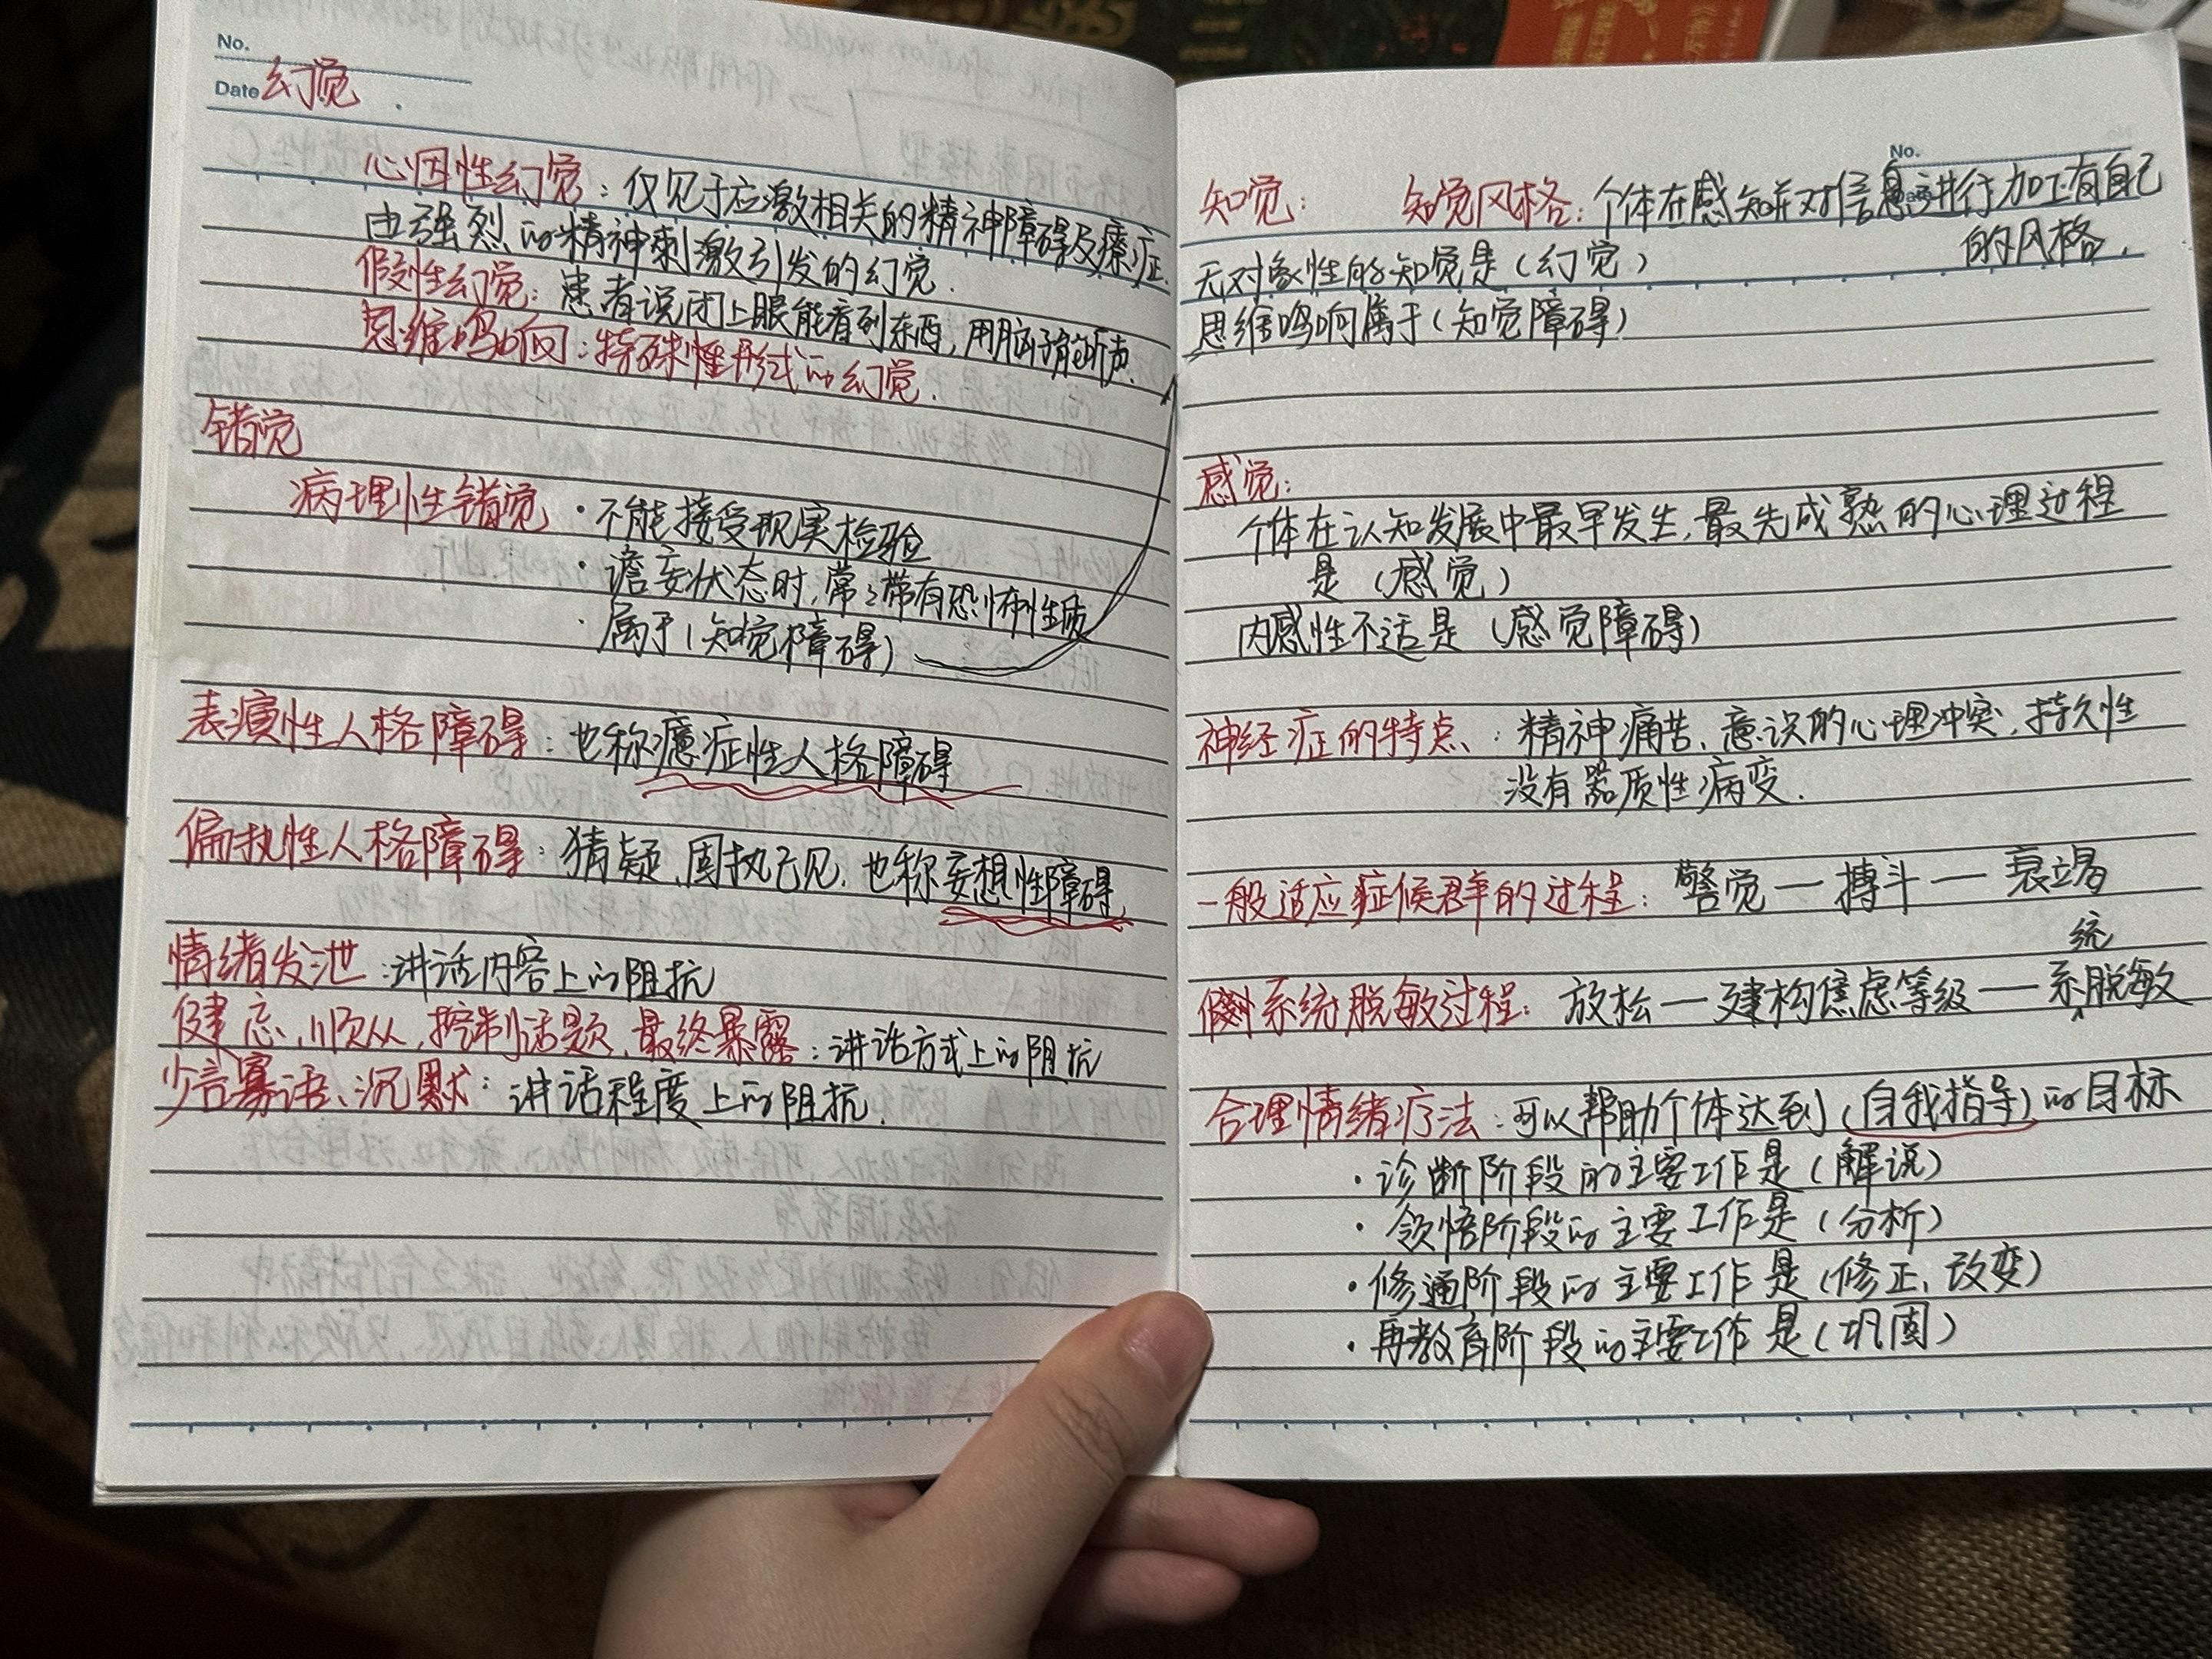 No.
Date 幻觉
心因性幻觉：仅见于应激相关的精神障碍及癔症.
由强烈的精神刺激引发的幻觉.
假性幻觉：患者说闭上眼能看到东西，用脑子能听声.
思维鸣响：特殊性形式的幻觉.
错觉
病理性错觉 · 不能接受现实检验
· 谵妄状态时，常常带有恐怖性质
· 属于（知觉障碍）
表演性人格障碍：也称癔症性人格障碍
偏执性人格障碍：猜疑、固执己见，也称妄想性障碍
情绪发泄：讲话内容上的阻抗
健忘、顺从、控制话题、最终暴露：讲话方式上的阻抗
少言寡语、沉默：讲话程度上的阻抗.
No.
知觉： 知觉风格：个体在感知并对信息进行加工有自己
的风格.
无对象性的知觉是（幻觉）
思维鸣响属于（知觉障碍）
感觉：
个体在认知发展中最早发生，最先成熟的心理过程
是（感觉）
内感性不适是（感觉障碍）
神经症的特点：精神痛苦、意识的心理冲突，持久性
没有器质性病变.
一般适应症候群的过程：警觉—搏斗—衰竭
系统脱敏过程：放松—建构焦虑等级—系统脱敏
合理情绪疗法：可以帮助个体达到（自我指导）的目标
· 诊断阶段的主要工作是（解说）
· 领悟阶段的主要工作是（分析）
· 修通阶段的主要工作是（修正、改变）
· 再教育阶段的主要工作是（巩固）